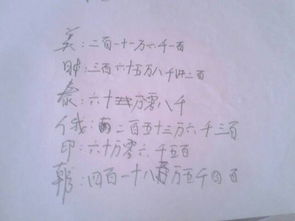 英：二百一十一万六千一百
日本：三百六十五万八千二百
泰：六十万零八千
俄：二百五十三万六千三百
印：六十万零六千五百
韩：四百一十八万五千四百